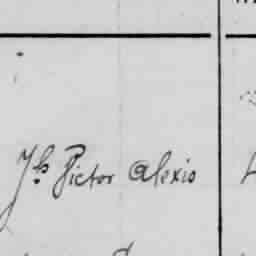 Jh Victor Alexis